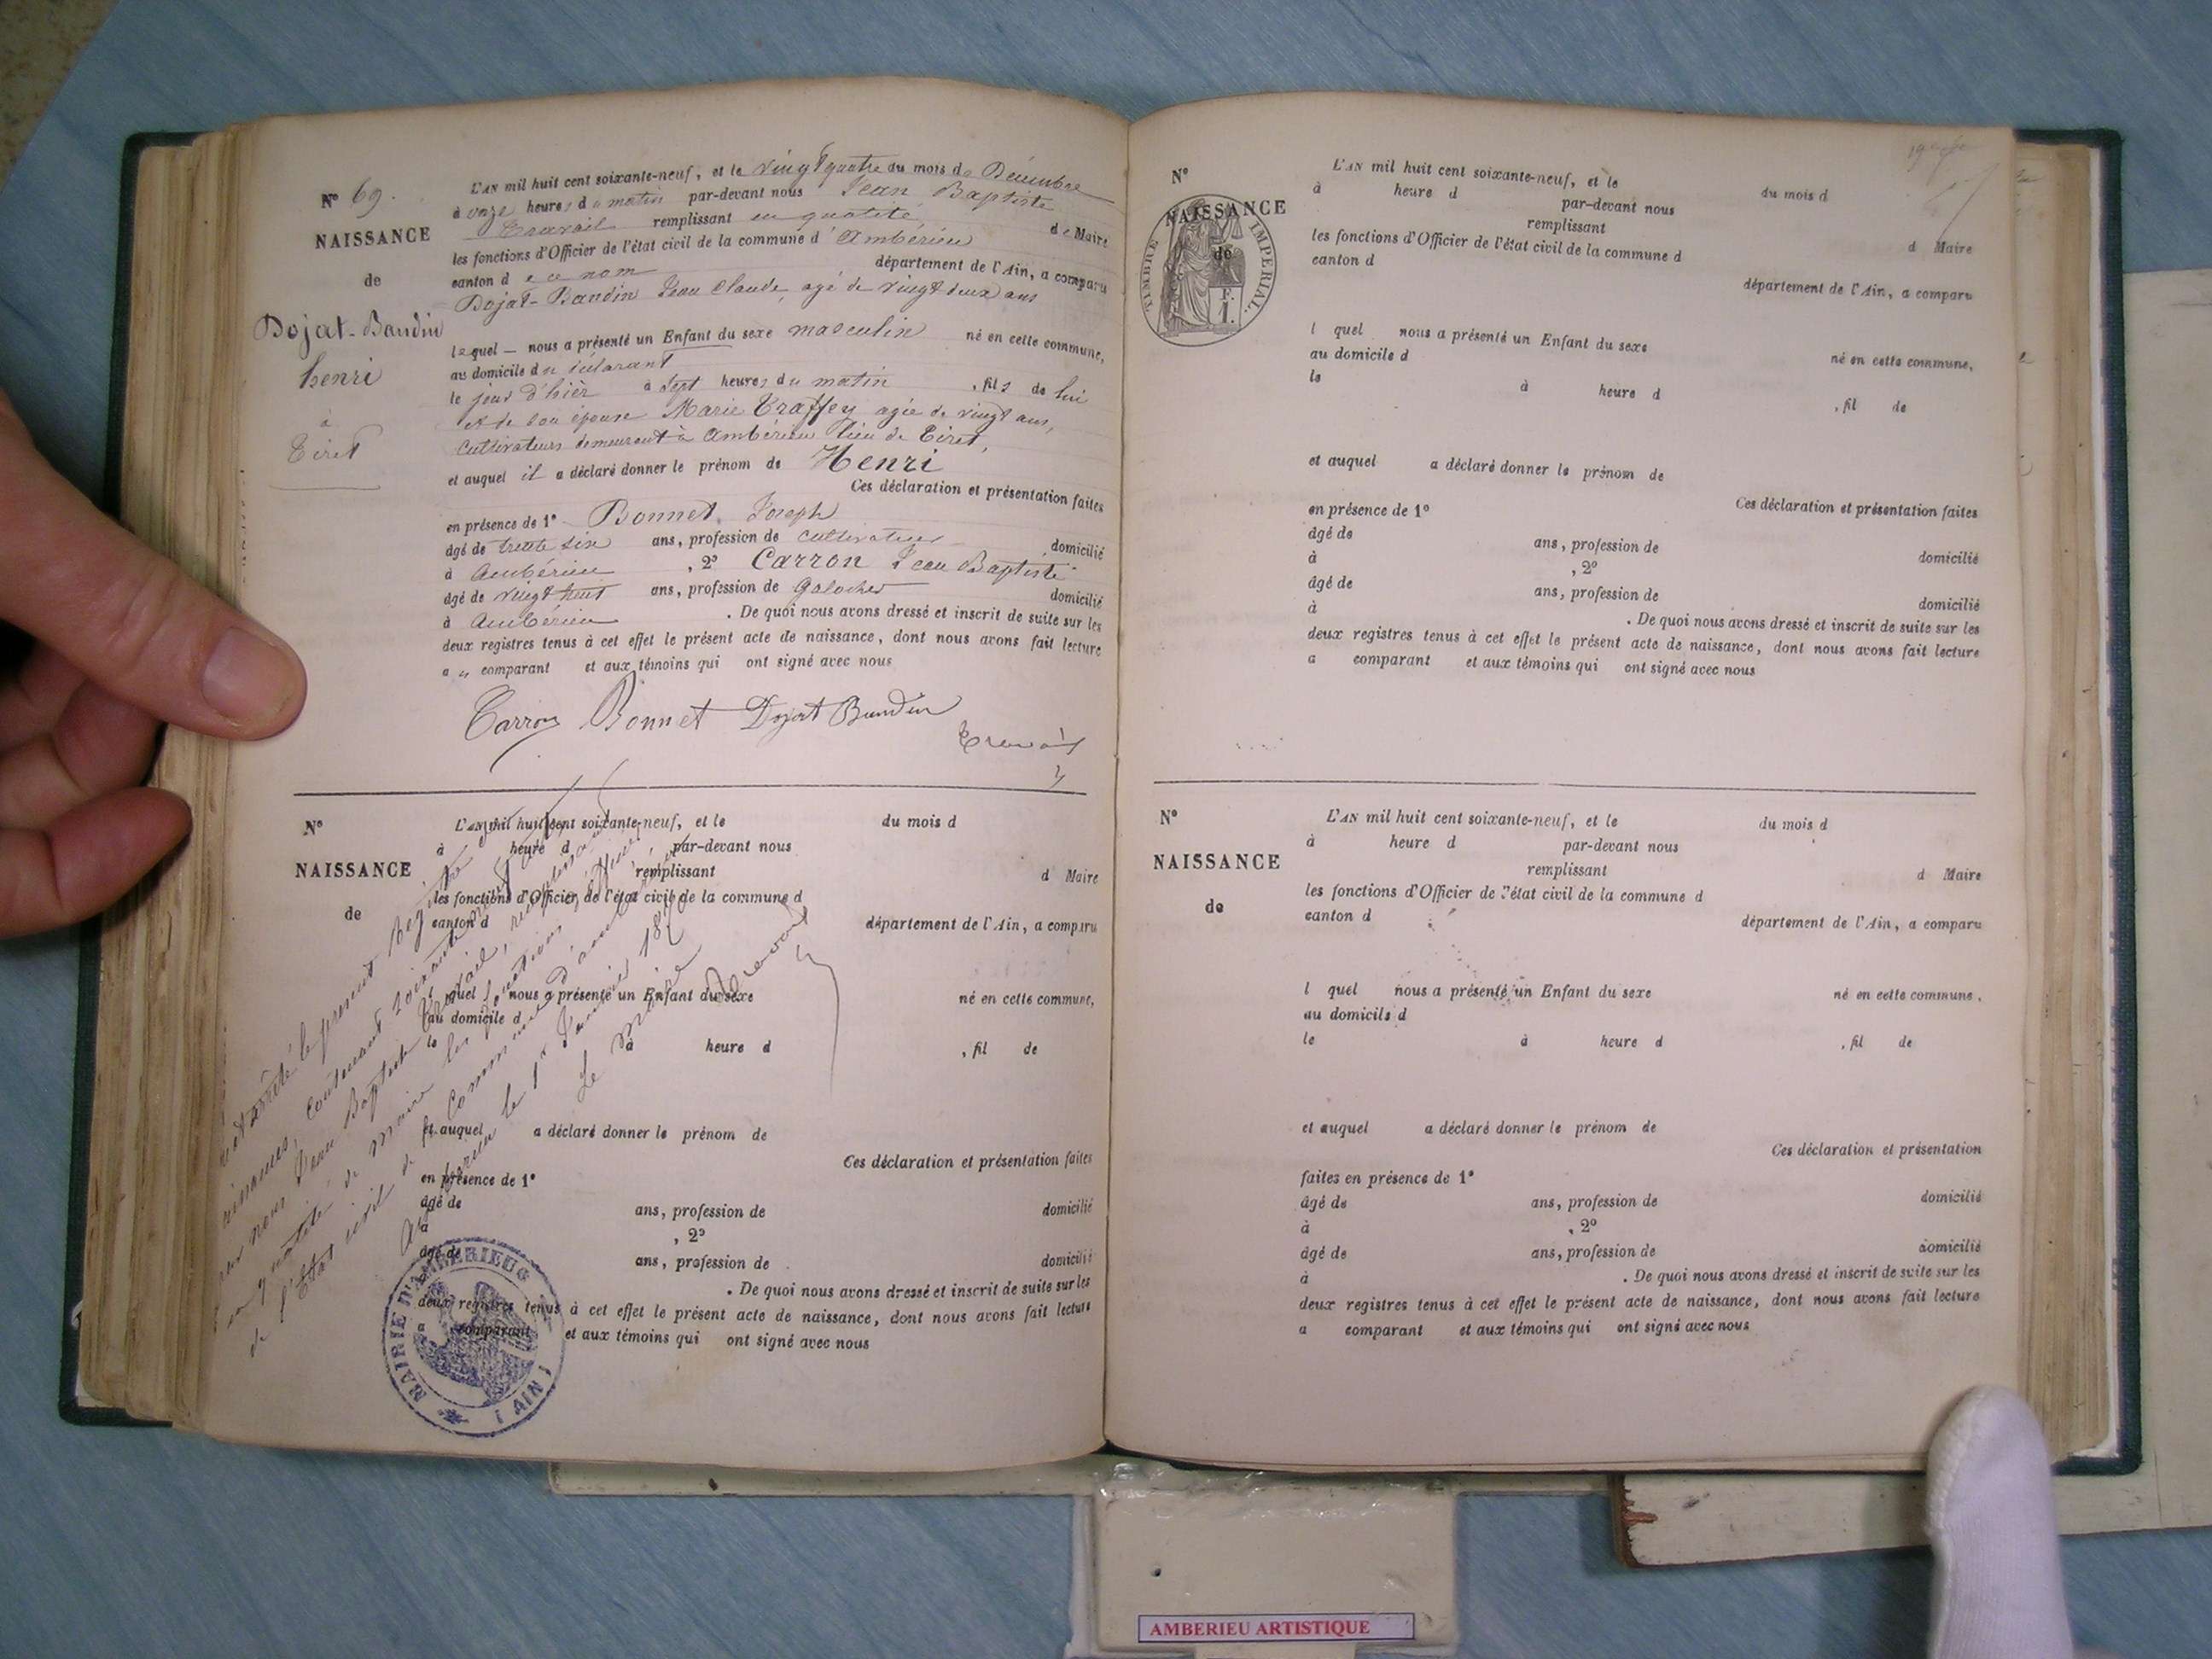 N° 69.
NAISSANCE
de
Dojat-Baudin
henri
à
Tiret
L'AN mil huit cent soixante-neuf, et le vingt quatre du mois de Décembre
à onze heures du matin par-devant nous Jean Baptiste
Cravail remplissant en qualité de Maire
les fonctions d'Officier de l'état civil de la commune d'Ambérieu
canton de ce nom département de l'Ain, a comparu
Dojat-Baudin Jean Claude, agé de vingt deux ans
lequel — nous a présenté un Enfant du sexe masculin né en cette commune,
au domicile du déclarant
le jour d'hièr à sept heures du matin, fils de lui
et de son épouse Marie Traffey agée de vingt ans,
cultivateurs demeurant à Ambérieu lieu de Tiret,
et auquel il a déclaré donner le prénom de Henri
Ces déclaration et présentation faites
en présence de 1° Bonnet Joseph
âgé de trente six ans, profession de cultivateur domicilié
à Ambérieu, 2° Carron Jean Baptiste
âgé de vingt huit ans, profession de Galocher domicilié
à Ambérieu. De quoi nous avons dressé et inscrit de suite sur les
deux registres tenus à cet effet le présent acte de naissance, dont nous avons fait lecture
au comparant et aux témoins qui ont signé avec nous
Carron Bonnet Dojat Baudin
Cravail
N°
NAISSANCE
de
L'AN mil huit cent soixante-neuf, et le du mois d
à heure d par-devant nous
remplissant d Maire
les fonctions d'Officier de l'état civil de la commune d
canton d département de l'Ain, a comparu
l quel nous a présenté un Enfant du sexe né en cette commune,
au domicile d
le à heure d , fil de
et auquel a déclaré donner le prénom de
Ces déclaration et présentation faites
en présence de 1°
âgé de ans, profession de domicilié
à , 2°
âgé de ans, profession de domicilié
à . De quoi nous avons dressé et inscrit de suite sur les
deux registres tenus à cet effet le présent acte de naissance, dont nous avons fait lecture
a comparant et aux témoins qui ont signé avec nous
arrêté le présent Registre
naissances, contenant soixante
par nous Jean Baptiste Cravail, remplissant
en qualité de Maire les fonctions d'officier
de l'État civil de la Commune d'Ambérieu
Ambérieu le 1er Janvier 1870
Le Maire
Cravail
MAIRIE D'AMBÉRIEU
(AIN)
N°
NAISSANCE
de
TIMBRE IMPERIAL
1 F.
L'AN mil huit cent soixante-neuf, et le du mois d
à heure d par-devant nous
remplissant d Maire
les fonctions d'Officier de l'état civil de la commune d
canton d département de l'Ain, a comparu
l quel nous a présenté un Enfant du sexe né en cette commune,
au domicile d
le à heure d , fil de
et auquel a déclaré donner le prénom de
Ces déclaration et présentation faites
en présence de 1°
âgé de ans, profession de domicilié
à , 2°
âgé de ans, profession de domicilié
à . De quoi nous avons dressé et inscrit de suite sur les
deux registres tenus à cet effet le présent acte de naissance, dont nous avons fait lecture
a comparant et aux témoins qui ont signé avec nous
N°
NAISSANCE
de
L'AN mil huit cent soixante-neuf, et le du mois d
à heure d par-devant nous
remplissant d Maire
les fonctions d'Officier de l'état civil de la commune d
canton d département de l'Ain, a comparu
l quel nous a présenté un Enfant du sexe né en cette commune.
au domicile d
le à heure d , fil de
et auquel a déclaré donner le prénom de
Ces déclaration et présentation
faites en présence de 1°
âgé de ans, profession de domicilié
à , 2°
âgé de ans, profession de domicilié
à . De quoi nous avons dressé et inscrit de suite sur les
deux registres tenus à cet effet le présent acte de naissance, dont nous avons fait lecture
a comparant et aux témoins qui ont signé avec nous
AMBERIEU ARTISTIQUE